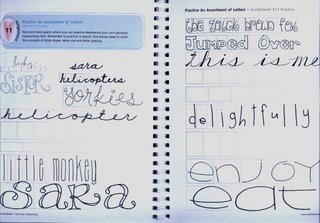 Practice An Assortment of Letters
11
Here are more spaces where you can practice developing your own personal
handwriting font. Remember to practice in pencil! And always keep in mind
the concepts of letter shape, letter size and letter spacing.
baby
sister
sara
helicopters
yorkies
helicopter
little monkey
sara
Practice An Assortment of Letters - Assignment #11 Practice
the quick brown fox
Jumped Over
this is me
delightfully
enjoy
eat